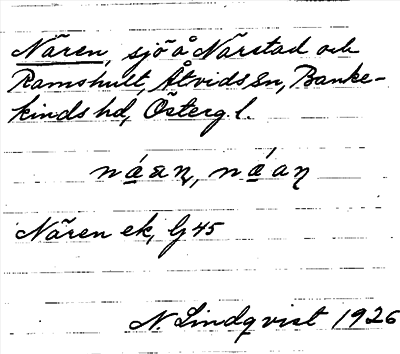 Nären, sjö å Närstad och
Ramshult, Åtvids sn, Banke-
kinds hd, Österg. l.
Nären ek, G 45
N. Lindqvist 1926